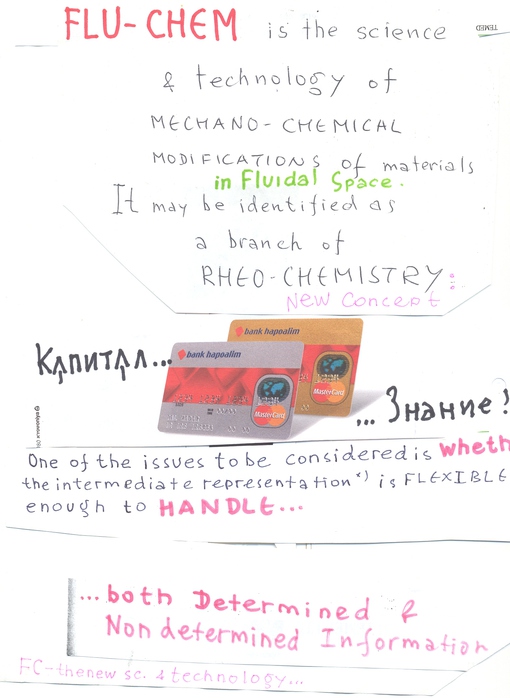 FLU-CHEM is the science
TEMED
& technology of
MECHANO-CHEMICAL
MODIFICATIONS of materials
in Fluidal Space.
It may be identified as
a branch of
RHEO-CHEMISTRY:
New Concept
bank hapoalim
bank hapoalim
Капитал...
MasterCard
MasterCard
... Знание!
One of the issues to be considered is wheth
the intermediate representation*) is FLEXIBLE
enough to HANDLE...
...both Determined &
Non determined Information
FC-thenew sc. & technology...